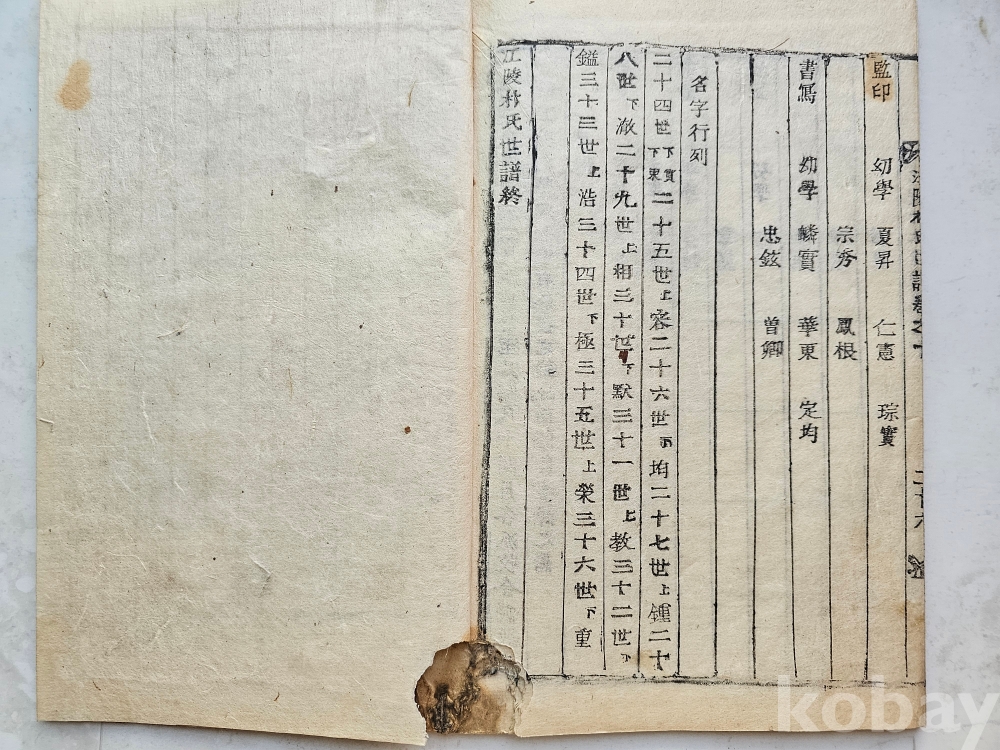 江陵朴氏世譜卷之下 二十六
監印 幼學 夏昇 仁憲 琮實
宗秀 鳳根
書寫 幼學 嶙實 華東 定均
忠鉉 曽卿
名字行列
二十四世下實下東二十五世上容二十六世下均二十七世上鍾二十
八世下淑二十九世上相三十世下默三十一世上敎三十二世下
鎰三十三世上浩三十四世下極三十五世上榮三十六世下重
江陵朴氏世譜終
kobay